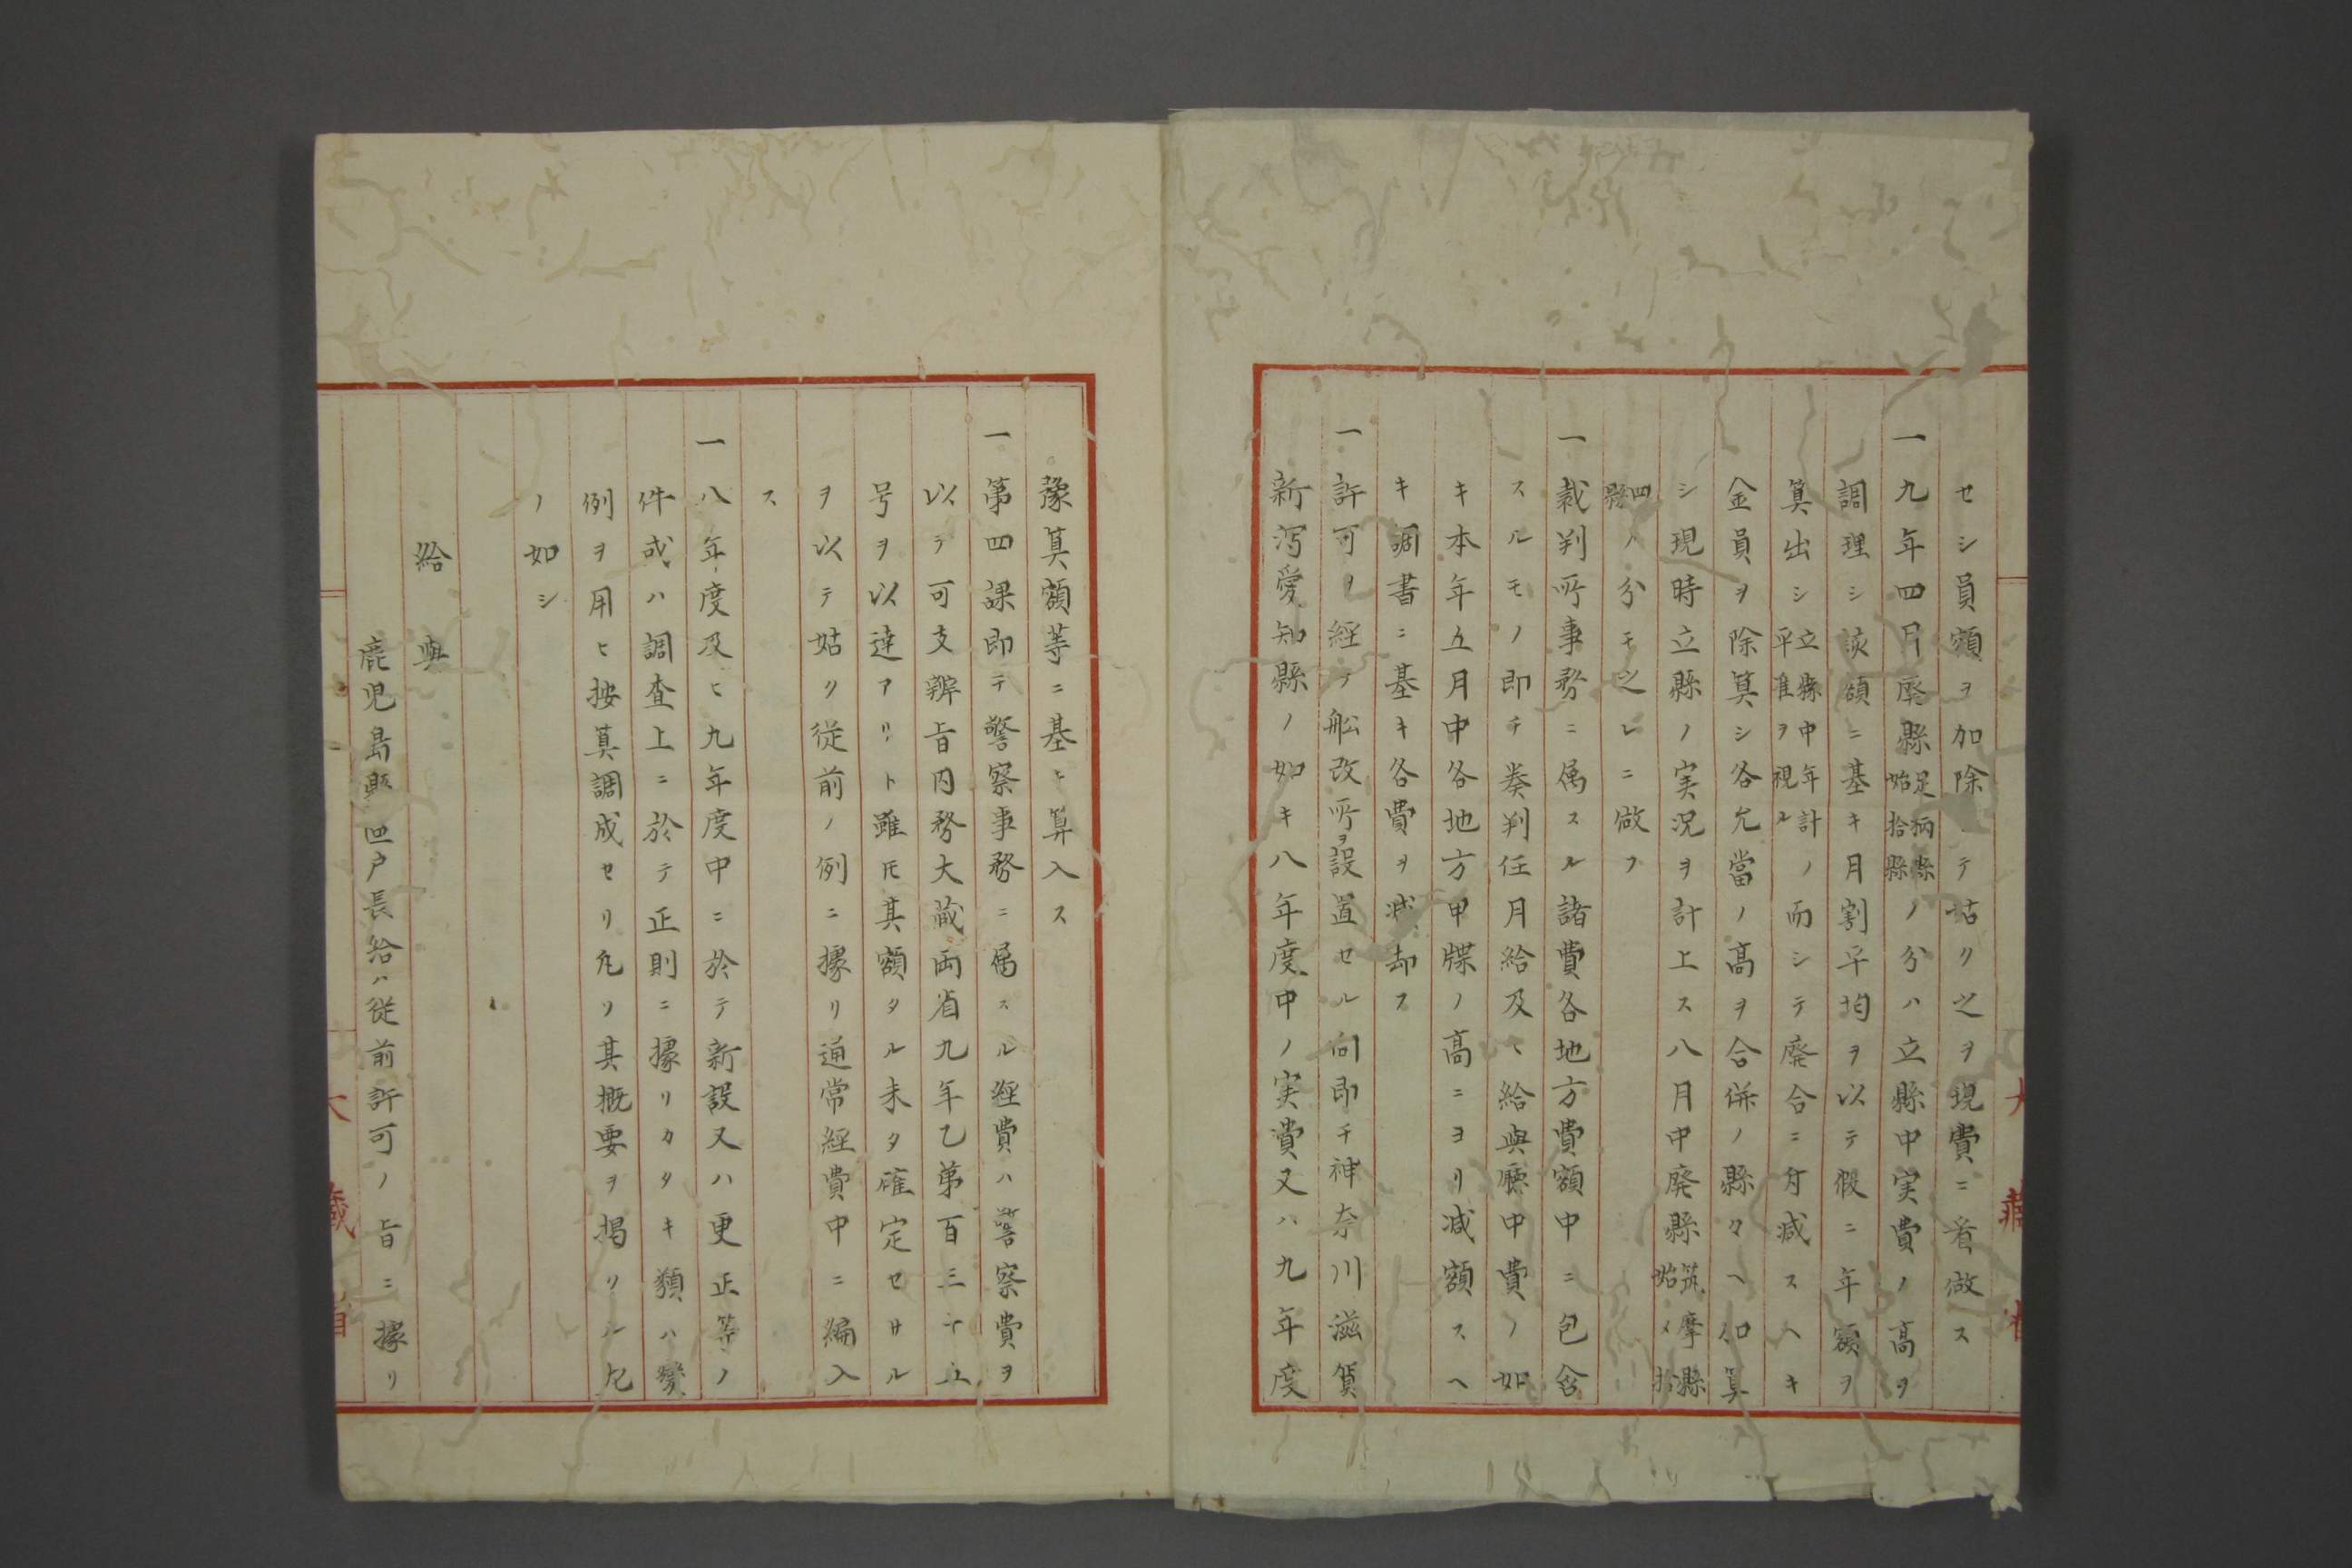 セシ員額ヲ加除シテ姑ク之ヲ現費ニ看做ス
一九年四月廃縣足柄縣始拾縣ノ分ハ立縣中実費ノ高ヲ
調理シ該額ニ基キ月割平均ヲ以テ假ニ年額ヲ
算出シ立縣中年計ノ平准ヲ視ル而シテ廃合ニ付減スヘキ
金員ヲ除算シ各允當ノ高ヲ合併ノ縣々ヘ加算
シ現時立縣ノ実況ヲ計上ス八月中廃縣筑摩縣始メ拾
四縣ノ分モ之レニ做フ
一裁判所事務ニ属スル諸費各地方費額中ニ包含
スルモノ即チ奏判任月給及ヒ給與廳中費ノ如
キ本年五月中各地方甲牒ノ高ニヨリ減額スヘ
キ調書ニ基キ各費ヲ減却ス
一許可ヲ経テ舩改所ヲ設置セル向即チ神奈川滋賀
新潟愛知縣ノ如キ八年度中ノ実費又ハ九年度
豫算額等ニ基ヒ算入ス
一第四課即チ警察事務ニ属スル経費ハ警察費ヲ
以テ可支辨旨内務大藏両省九年乙第百三十五
号ヲ以達アリト雖モ其額タル未タ確定セサル
ヲ以テ姑ク従前ノ例ニ據リ通常経費中ニ編入
ス
一八年度及ヒ九年度中ニ於テ新設又ハ更正等ノ
件或ハ調査上ニ於テ正則ニ據リカタキ類ハ變
例ヲ用ヒ按算調成セリ凡ソ其概要ヲ掲クル左
ノ如シ
給與
鹿児島縣區戸長給ハ従前許可ノ旨ニ據リ
大藏省